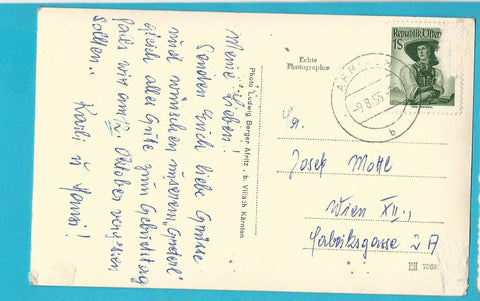 Meine Lieben!
Senden Euch liebe Grüsse
und wünschen unserem "
gleich alles Gute zum Geburtstag
falls wir am 12. Oktober vergessen
sollten..
Karli u Hansi!
Photo Ludwig Berger Afritz, b. Villach Kärnten
Echte
Photographie
Republik Öster
1S
-9.8.55-
b
Josef Mottl
Wien XII.,
Fabriksgasse 2A
7568